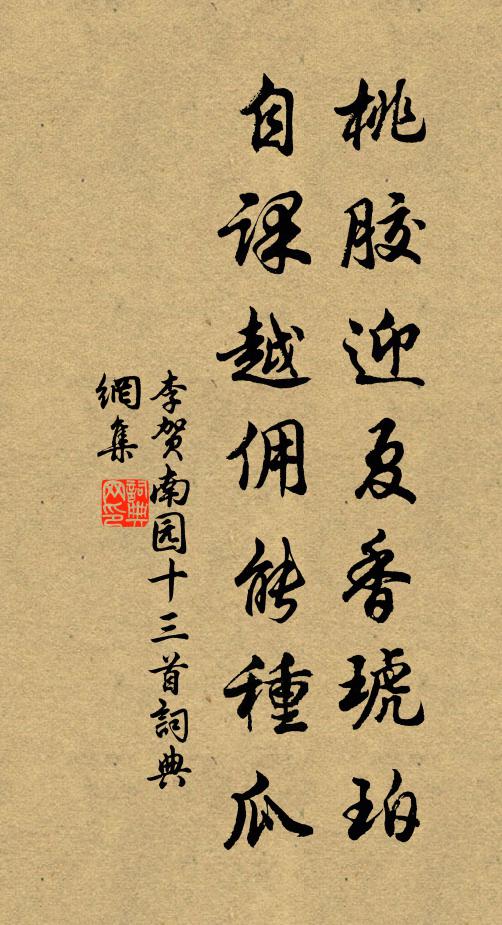 桃胶迎夏香琥珀
自课越佣能種瓜
李贺南园十三首詞典
網集
詞典
网印